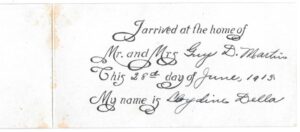 I arrived at the home of
Mr. and Mrs Guy D. Martin
This 28th day of June, 1913
My name is Della